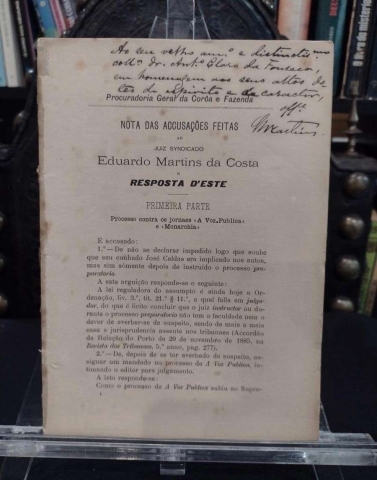 Ao seu velho am.º e distinctissimo
coll.ª Dr. Ant.º da Fonseca,
em homenagem aos seus altos do-
tes de espirito e de caracter,
off.
Martins
Procuradoria Geral da Corôa e Fazenda
NOTA DAS ACCUSAÇÕES FEITAS
AO
JUIZ SYNDICADO
Eduardo Martins da Costa
E
RESPOSTA D'ESTE
PRIMEIRA PARTE
Processo contra os jornaes «A Voz Publica»
e «Monarchia»
É accusado:
1.º—De não se declarar impedido logo que soube
que seu cunhado José Caldas era implicado nos autos,
mas sim sómente depois de instruido o processo pre-
paratorio.
A esta arguição responde-se o seguinte:
A lei reguladora do assumpto é ainda hoje a Or-
denação, liv. 3.º, tit. 21.º § 11.º, a qual falla em julga-
dor, do que é licito concluir que o juiz instructor ou du-
rante o processo preparatorio não tem a faculdade nem o
dever de averbar-se de suspeito, sendo de mais a mais
essa a jurisprudencia assente nos tribunaes (Accordão
da Relação do Porto de 20 de novembro de 1885, na
Revista dos Tribunaes, 5.º anno, pag. 277).
2.º—De, depois de se ter averbado de suspeito, as-
signar um mandado no processo de A Voz Publica, in-
timando o editor para julgamento.
A isto responde-se:
Como o processo de A Voz Publica subiu no Supre-